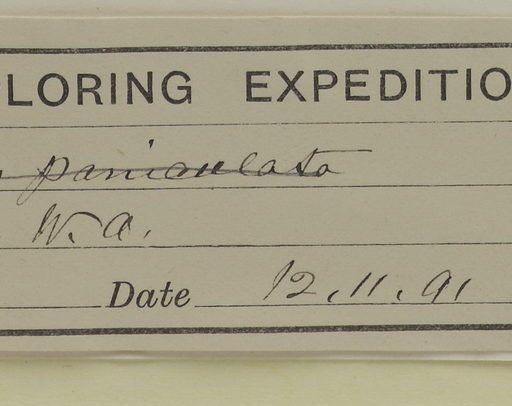 PLORING EXPEDITIO
paniculata
W. A.
Date 12.11.91